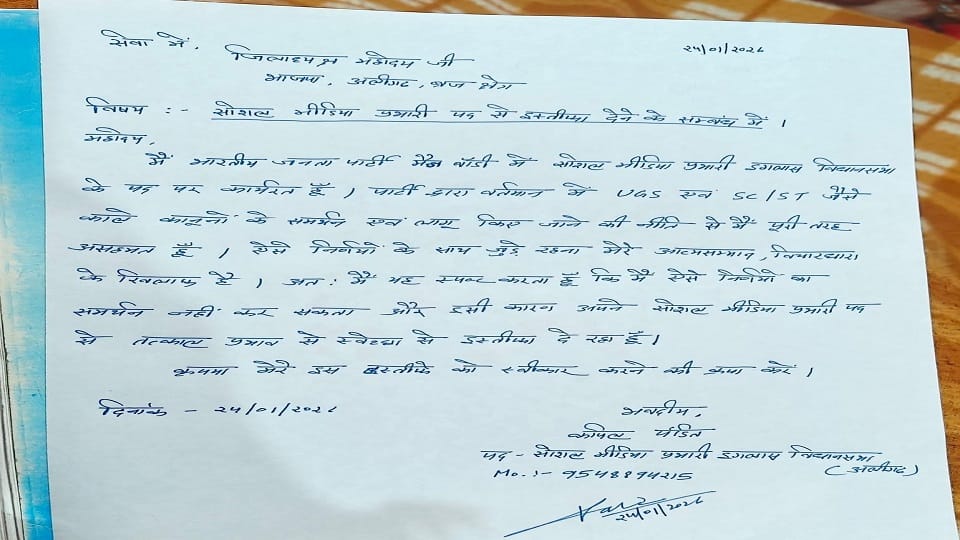 २५/01/2026
सेवा में,
जिलाध्यक्ष महोदय जी
भाजपा, अलीगढ़, ब्रज क्षेत्र
विषय :- सोशल मीडिया प्रभारी पद से इस्तीफा देने के सम्बंध में ।
महोदय,
मैं भारतीय जनता पार्टी मैन बॉडी में सोशल मीडिया प्रभारी इगलास विधानसभा
के पद पर कार्यरत हूँ । पार्टी द्वारा वर्तमान में UGS एवं SC/ST जैसे
काले कानूनों के समर्थन एवं लागू किए जाने की नीति से मैं पूरी तरह
असहमत हूँ । ऐसे निर्णयों के साथ जुड़े रहना मेरे आत्मसम्मान, विचारधारा
के खिलाफ है । अत: मैं यह स्पष्ट करता हूँ कि मैं ऐसे निर्णयों का
समर्थन नहीं कर सकता और इसी कारण अपने सोशल मीडिया प्रभारी पद
से तत्काल प्रभाव से स्वेच्छा से इस्तीफा दे रहा हूँ।
कृपया मेरे इस इस्तीफे को स्वीकार करने की कृपा करें ।
दिनांक - २५/01/2026
भवदीय,
कपिल पंडित
पद - सोशल मीडिया प्रभारी इगलास विधानसभा
(अलीगढ़)
Mo. :- 9548894215
२५/01/2026